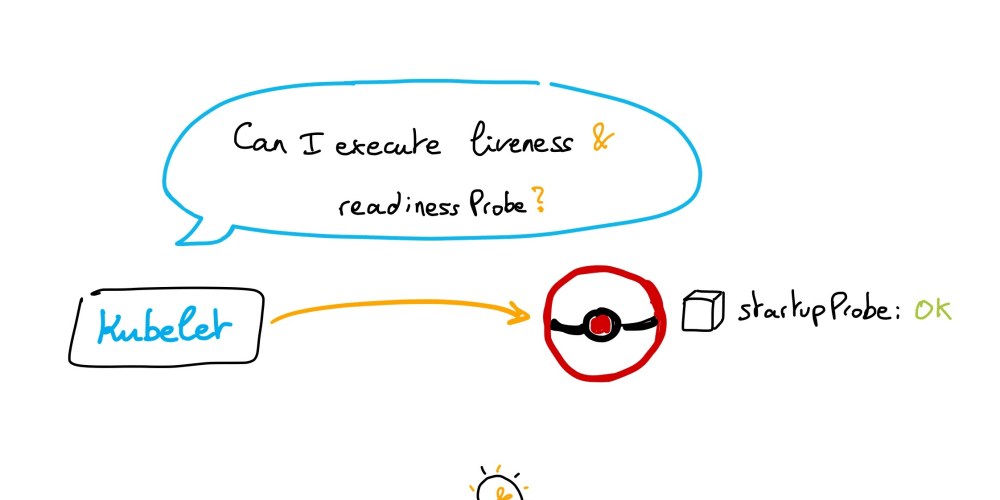 Can I execute liveness &
readinessProbe?
Kubelet
startupProbe: OK